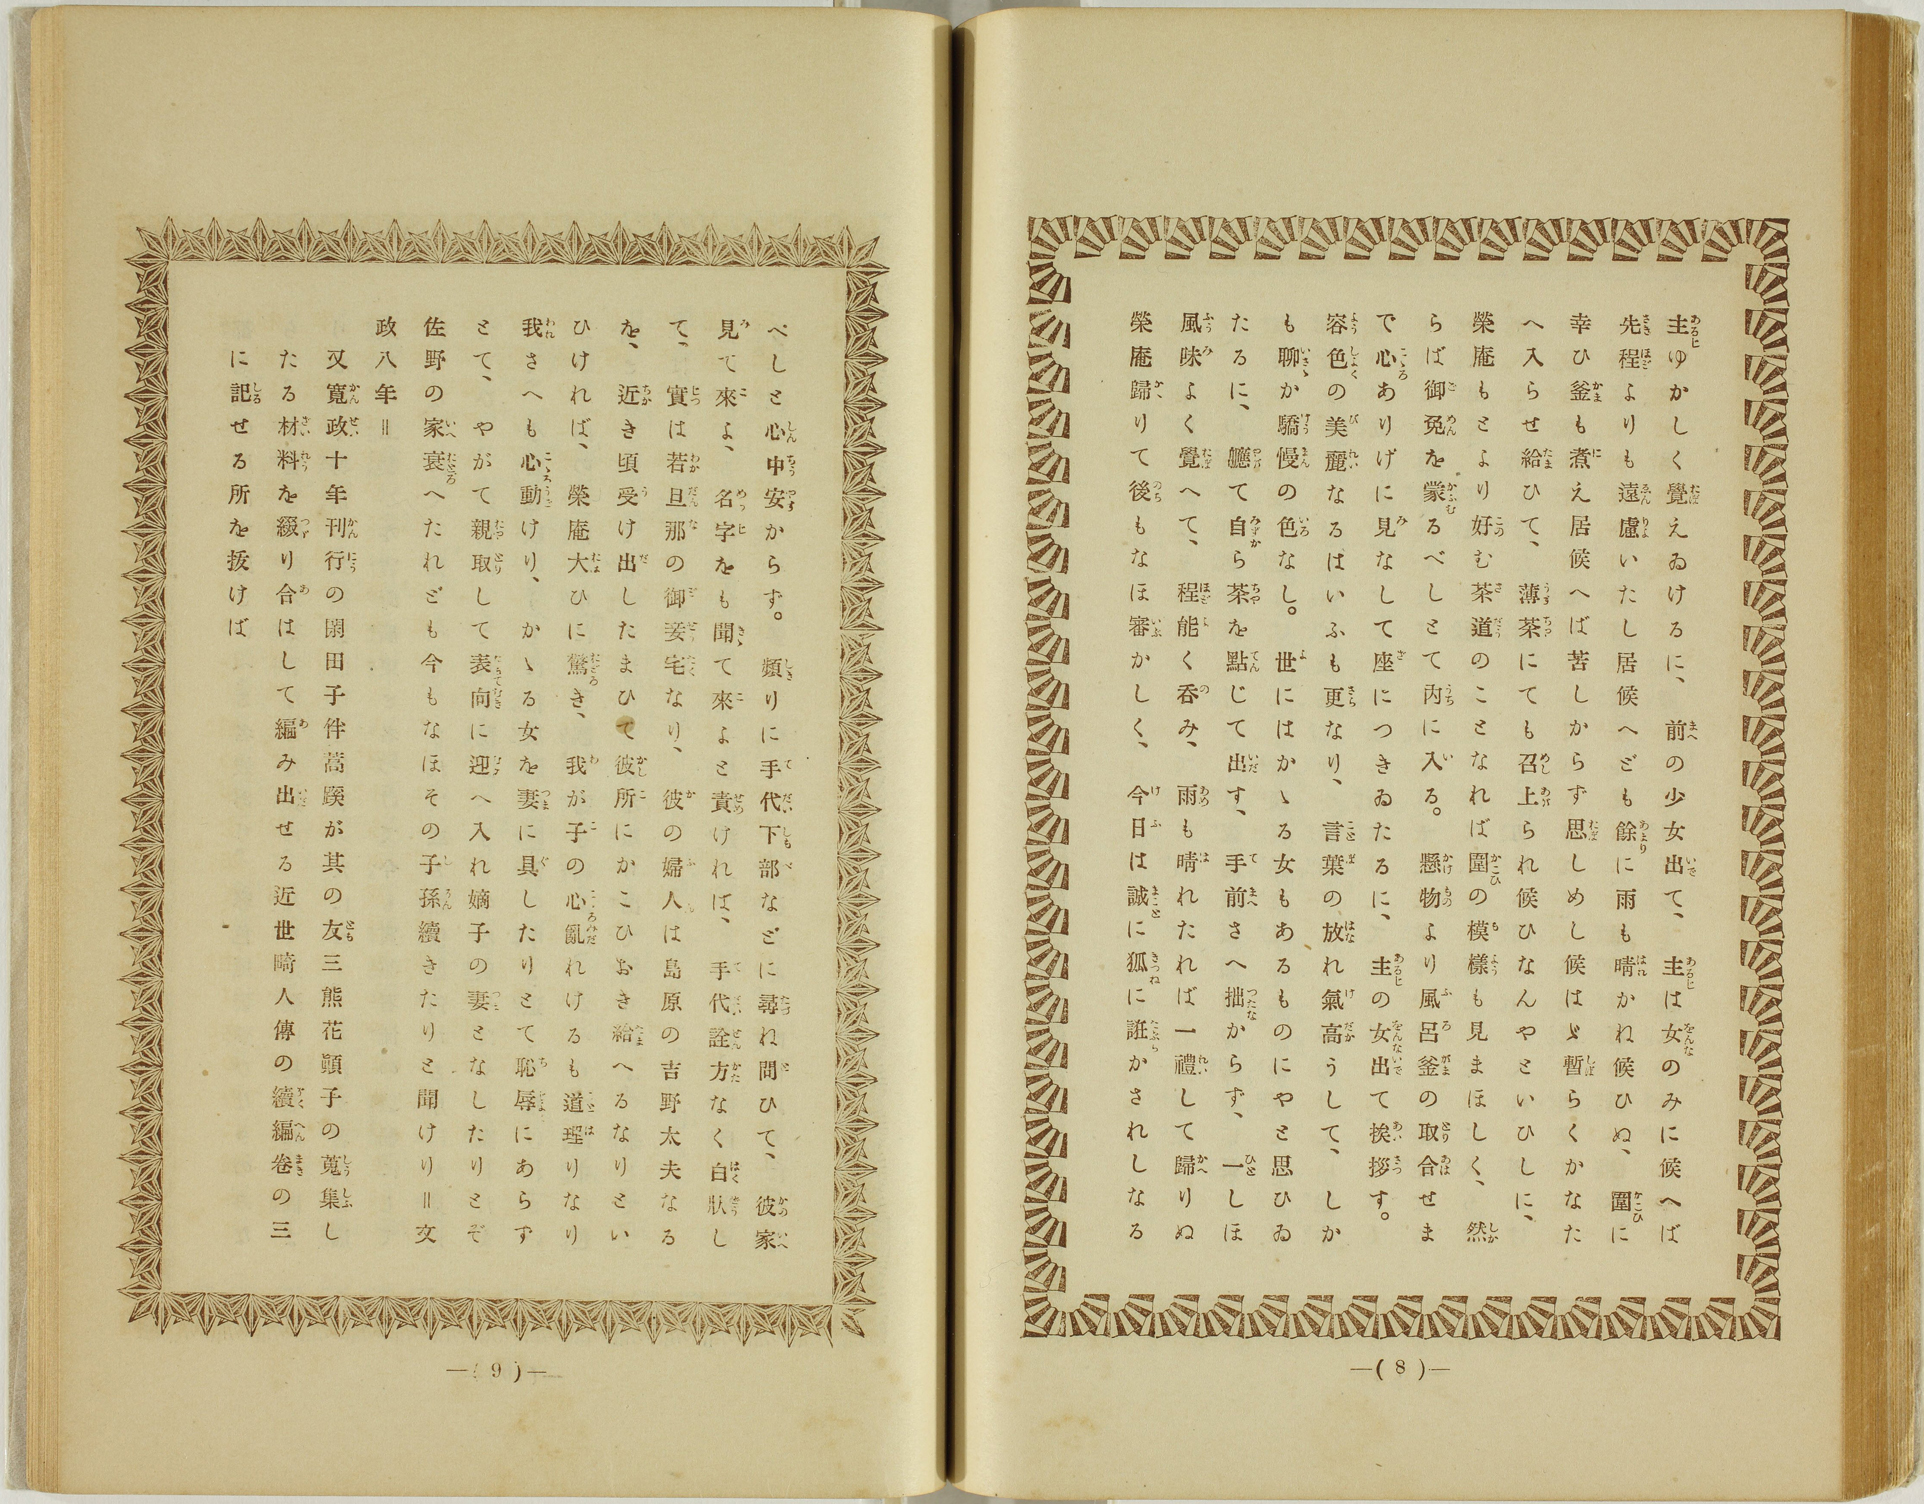 主ゆかしく覺えゐけるに、前の少女出て、主は女のみに候へば
先程よりも遠慮いたし居候へども餘に雨も晴かね候ひぬ、圍に
幸ひ釜も煮え居候へば苦しからず思しめし候はゞ暫らくかなた
へ入らせ給ひて、薄茶にても召上られ候ひなんやといひしに、
榮庵もとより好む茶道のことなれば圍の模樣も見まほしく、然
らば御免を蒙るべしとて內に入る。懸物より風呂釜の取合せま
で心ありげに見なして座につきゐたるに、主の女出て挨拶す。
容色の美麗なるはいふも更なり、言葉の放れ氣高うして、しか
も聊か驕慢の色なし。世にはかゝる女もあるものにやと思ひゐ
たるに、軈て自ら茶を點じて出す、手前さへ拙からず、一しほ
風味よく覺へて、程能く呑み、雨も晴れたれば一禮して歸りぬ
榮庵歸りて後もなほ審かしく、今日は誠に狐に誑かされしなる
—( 8 )—
べしと心中安からず。頻りに手代下部などに尋ね問ひて、彼家
見て來よ、名字をも聞て來よと責けれは、手代詮方なく白狀し
て、實は若旦那の御妾宅なり、彼の婦人は島原の吉野太夫なる
を、近き頃受け出したまひて彼所にかこひおき給へるなりとい
ひければ、榮庵大ひに驚き、我が子の心亂れけるも道理りなり
我さへも心動けり、かゝる女を妻に具したりとて恥辱にあらず
とて、やがて親取して表向に迎へ入れ嫡子の妻となしたりとぞ
佐野の家衰へたれども今もなほその子孫續きたりと聞けり＝文
政八年＝
又寬政十年刊行の閑田子伴蒿蹊が其の友三熊花顚子の蒐集し
たる材料を綴り合はして編み出せる近世畸人傳の續編卷の三
に記せる所を拔けば
—( 9 )—